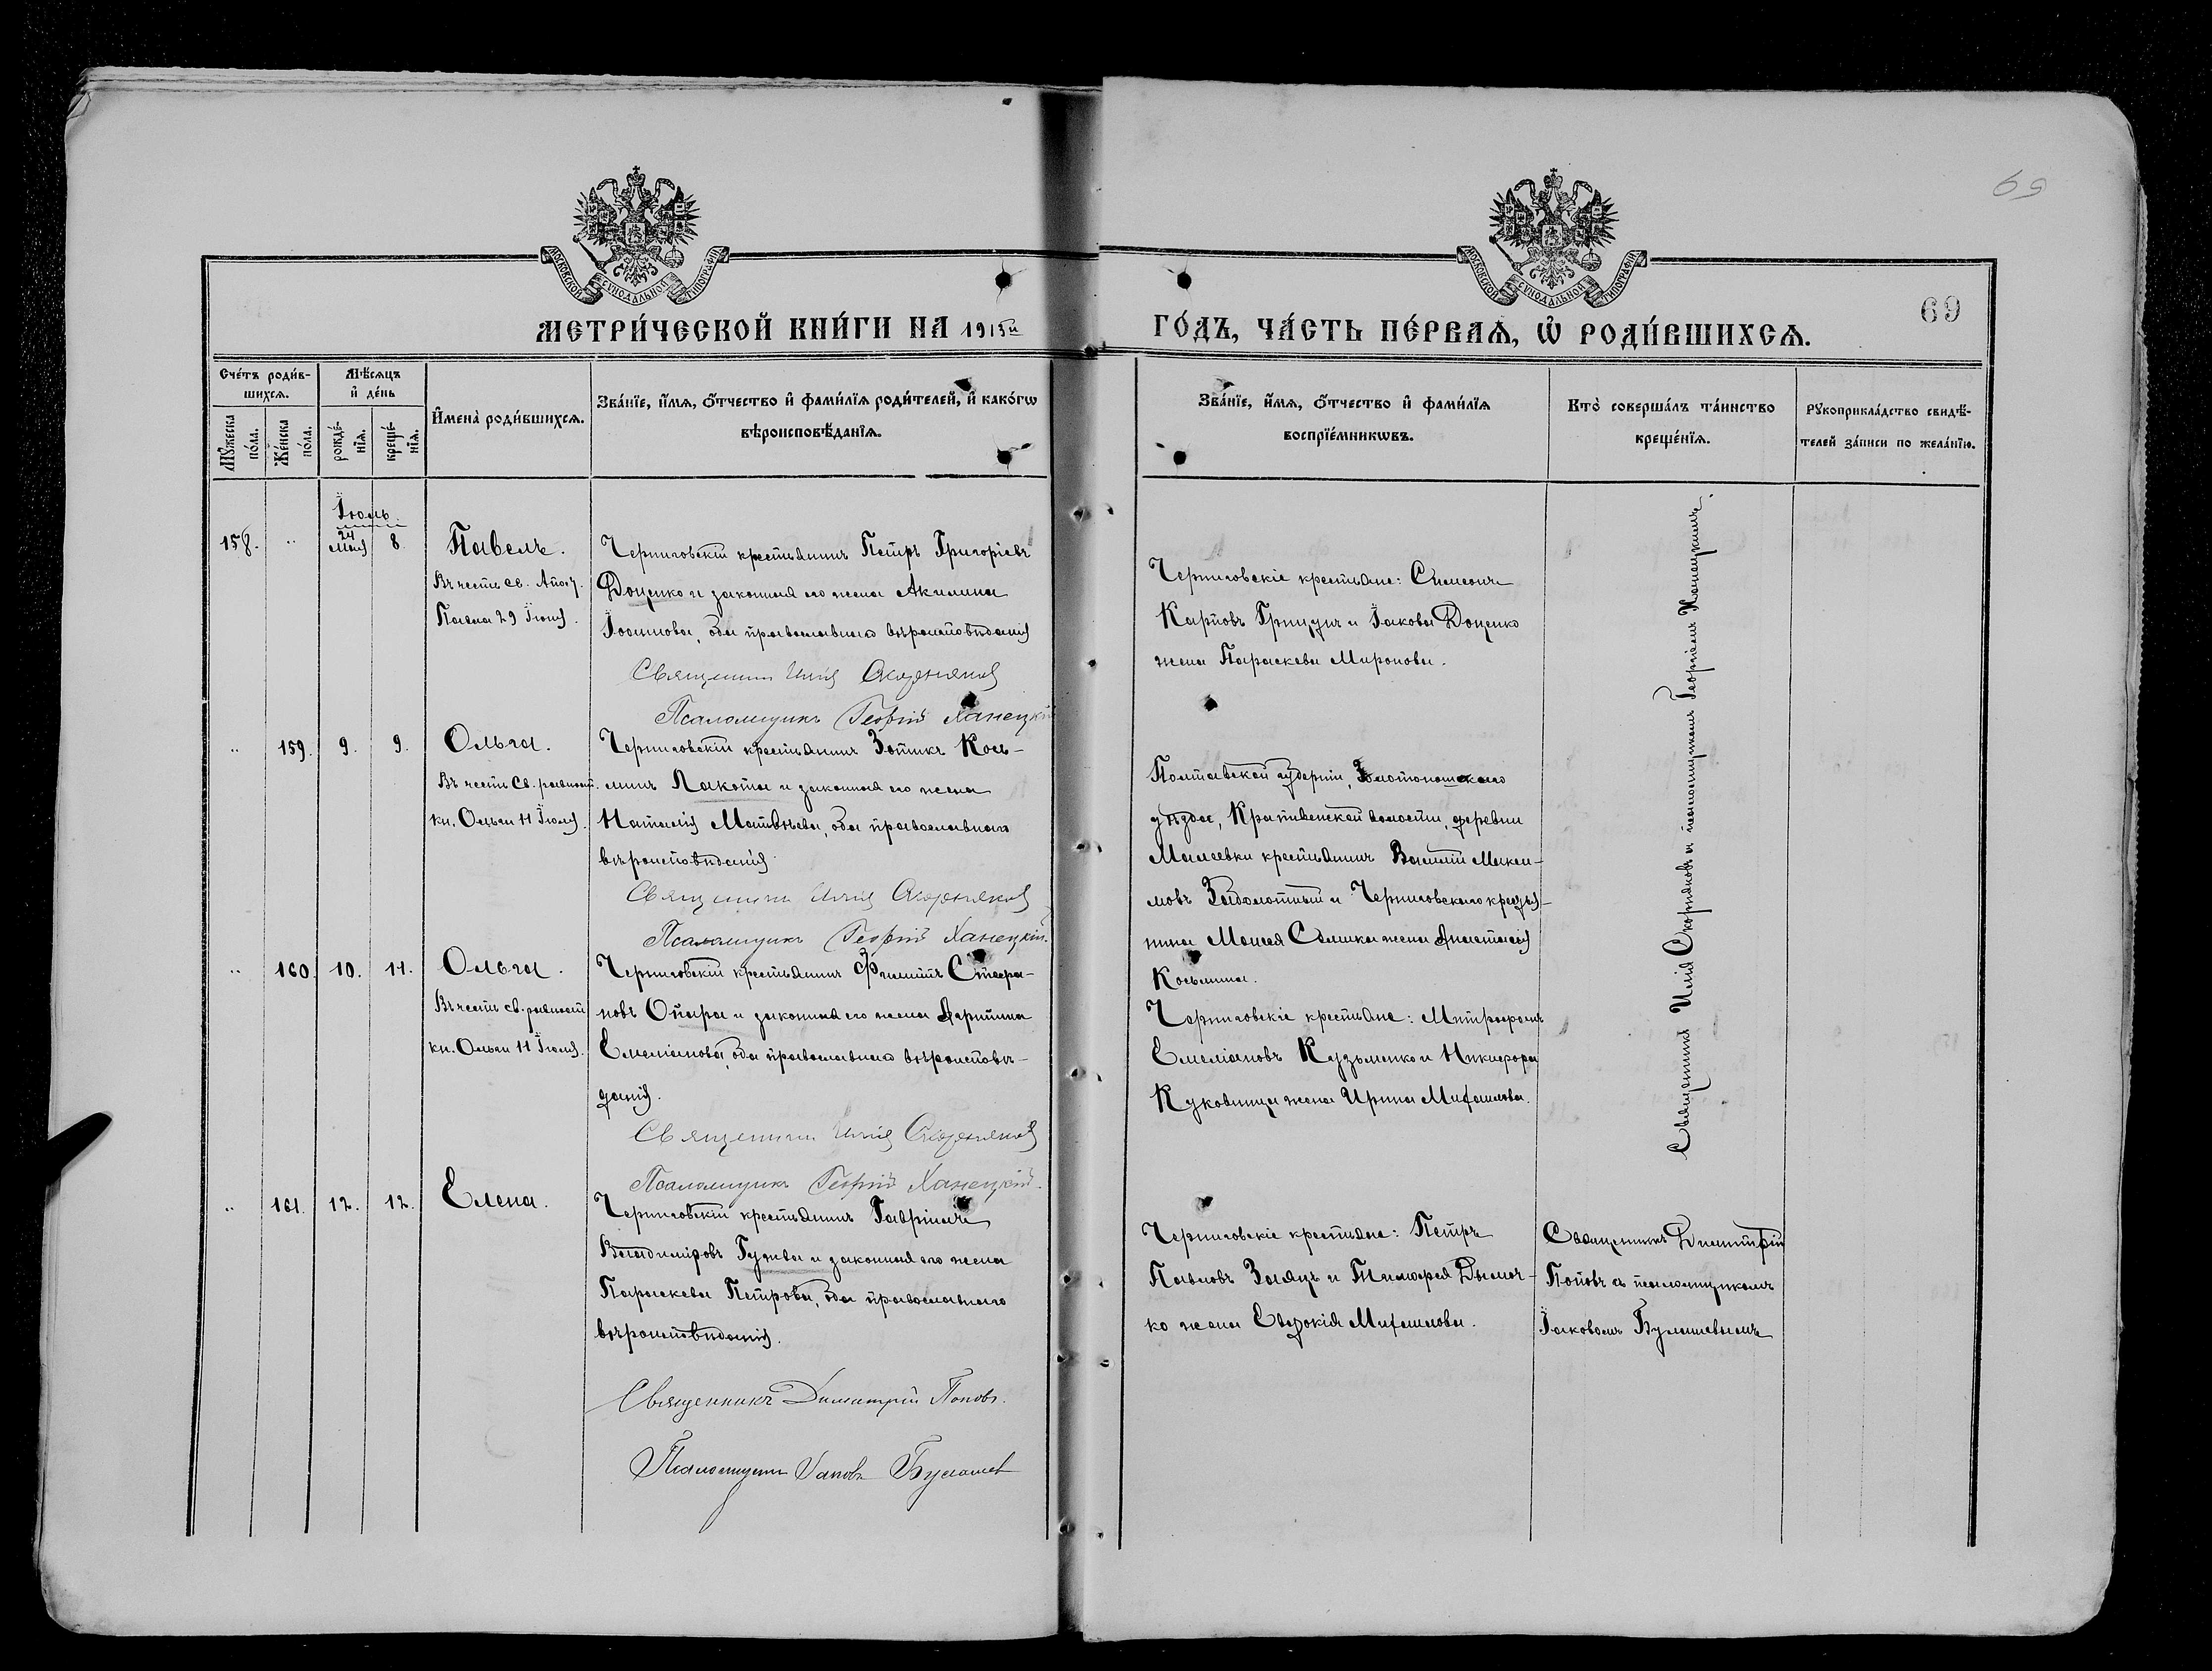 69
МОСКОВСКОЙ СѴНОДАЛЬНОЙ ТИПОГРАФІИ
МОСКОВСКОЙ СѴНОДАЛЬНОЙ ТИПОГРАФІИ
69
МЕТРИ́ЧЕСКОЙ КНИ́ГИ НА 1915й
ГО́ДЪ, ЧА́СТЬ ПЕ́РВАѦ, Ѡ҆ РОДИ́ВШИХСѦ.
Сче́тъ роди́в-
шихсѧ.
Мꙋжеска
по́ла.
Же́нска
по́ла.
Мѣ́сѧцъ
и҆ де́нь
рожде́-
нїѧ.
креще́-
нїѧ.
И҆мена̀ роди́вшихсѧ.
Зва́нїе, и҆́мѧ, ѻ҆́тчество и҆ фами́лїѧ роди́телей, и҆ како́гѡ
вѣроисповѣ́данїѧ.
Зва́нїе, и҆́мѧ, ѻ҆́тчество и҆ фами́лїѧ
воспрїе́мникѡвъ.
Кто̀ соверша́лъ та́инство
креще́нїѧ.
Рꙋкоприкла́дство свидѣ́-
телей за́писи по жела́нїю.
Іюль.
158. " 24 Мая 8 Павелъ.
Въ честь св. Апост.
Павла 29 Іюня.
Черниговскій крестьянинъ Петръ Григоріевъ
Доценко и законная его жена Акилина
Іоаннова, оба православнаго вѣроисповѣданія
Священникъ Илія Скорняковъ
Псаломщикъ Георгій Ханецкій
Черниговскіе крестьяне: Симеонъ
Карповъ Грицунъ и Іакова Доценко
жена Параскева Миронова.
Священникъ Илія Скорняковъ и псаломщикомъ Георгіемъ Ханецкимъ.
" 159. 9. 9. Ольга.
Въ честь св. равноап.
кн. Ольги 11 Іюля.
Черниговскій крестьянинъ Зотикъ Кось-
минъ Лакота и законная его жена
Наталія Матвѣева, оба православнаго
вѣроисповѣданія
Священникъ Илія Скорняковъ
Псаломщикъ Георгій Ханецкій.
Полтавской губерніи, Золотоношскаго
уѣзда, Крапивенской волости, деревни
Малеевки крестьянинъ Василій Макси-
мовъ Заболотный и Черниговскаго крестья-
нина Моисея жена Анастасія
Косьмина.
" 160. 10. 11. Ольга.
Въ честь св. равноап.
кн. Ольги 11 Іюля.
Черниговскій крестьянинъ Филиппъ Стефа-
новъ Опара и законная его жена
Емеліанова, оба православнаго вѣроисповѣ-
данія.
Священникъ Илія Скорняковъ
Псаломщикъ Георгій Ханецкій.
Черниговскіе крестьяне: Митрофанъ
Емеліановъ Кузьменко и Никифора
Куковица жена Ирина Михаилова.
" 161. 12. 12. Елена.
Черниговскій крестьянинъ Гавріилъ
Владиміровъ Гужва и законная его жена
Параскева Петрова, оба православнаго
вѣроисповѣданія.
Священникъ Димитрій Поповъ.
Псаломщикъ Іаковъ Булашев
Черниговскіе крестьяне: Петръ
Павловъ Заяцъ и Тимофея Дымоч-
ко жена Евдокія Михаилова.
Священникъ Димитрій
Поповъ съ псаломщикомъ
Іаковомъ Булашевымъ